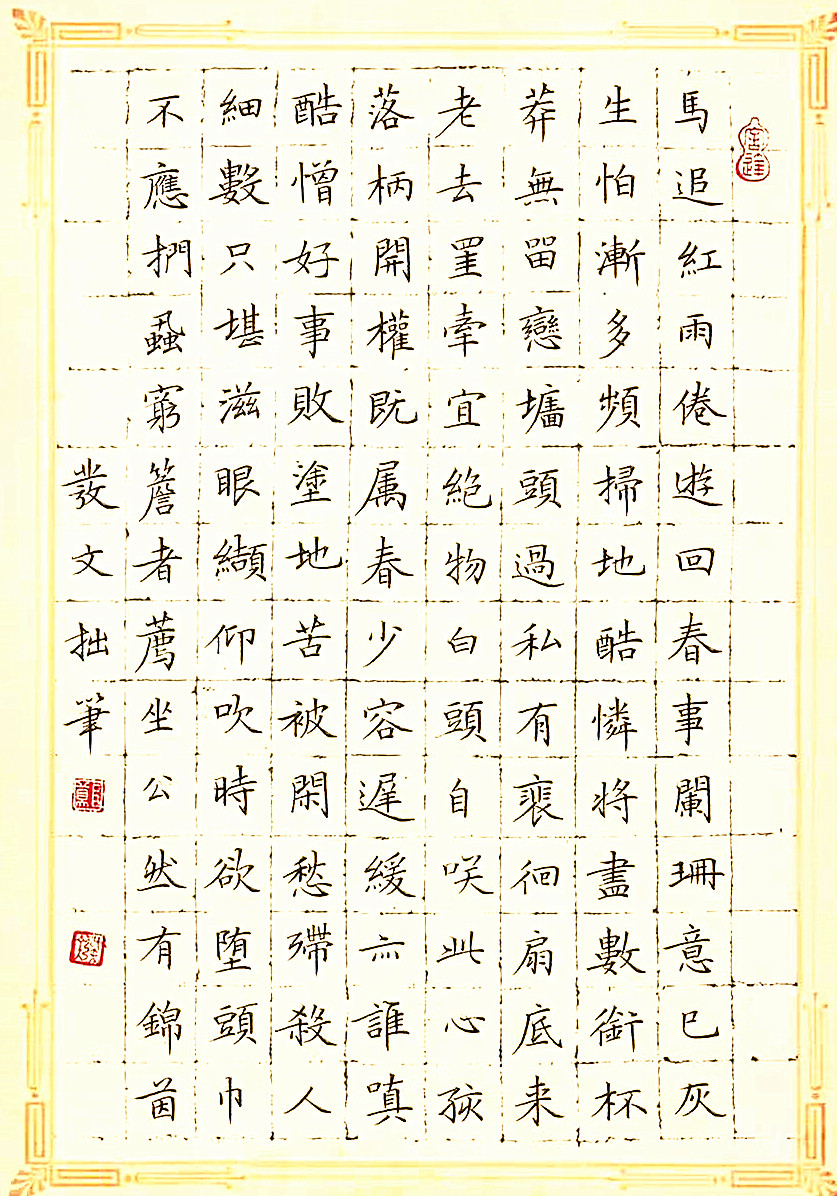 馬追紅雨倦遊回春事闌珊意已灰
生怕漸多頻掃地酷憐將盡數銜杯
莽無留戀墻頭過私有裵徊扇底来
老去罣牽宜絶物白頭自咲此心孩
落柄開權既属春少容遲緩亦誰嗔
酷憎好事敗塗地苦被閑愁殢殺人
細數只堪滋眼纈仰吹時欲墮頭巾
不應捫蝨窮簷者薦坐公然有錦茵
發文拙筆